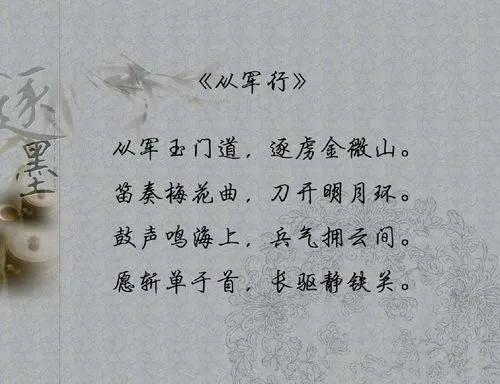 逐墨
《从军行》
从军玉门道，逐虏金微山。
笛奏梅花曲，刀开明月环。
鼓声鸣海上，兵气拥云间。
愿斩单于首，长驱静铁关。